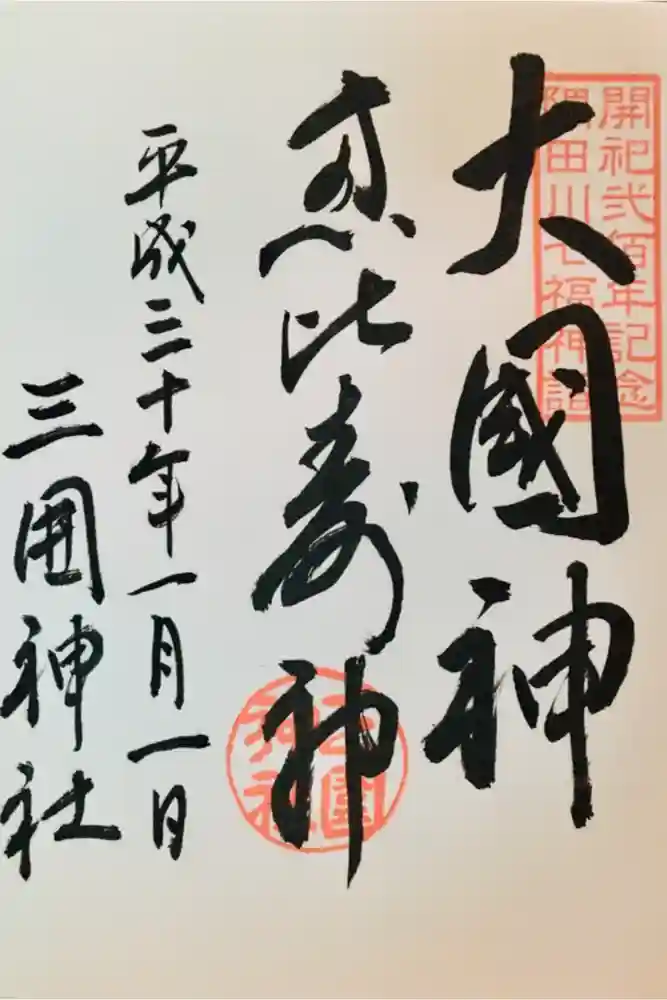 開祀弐佰年記念
隅田川七福神詣
大國神
恵比寿神
平成三十年一月一日
三囲神社
三圍神社